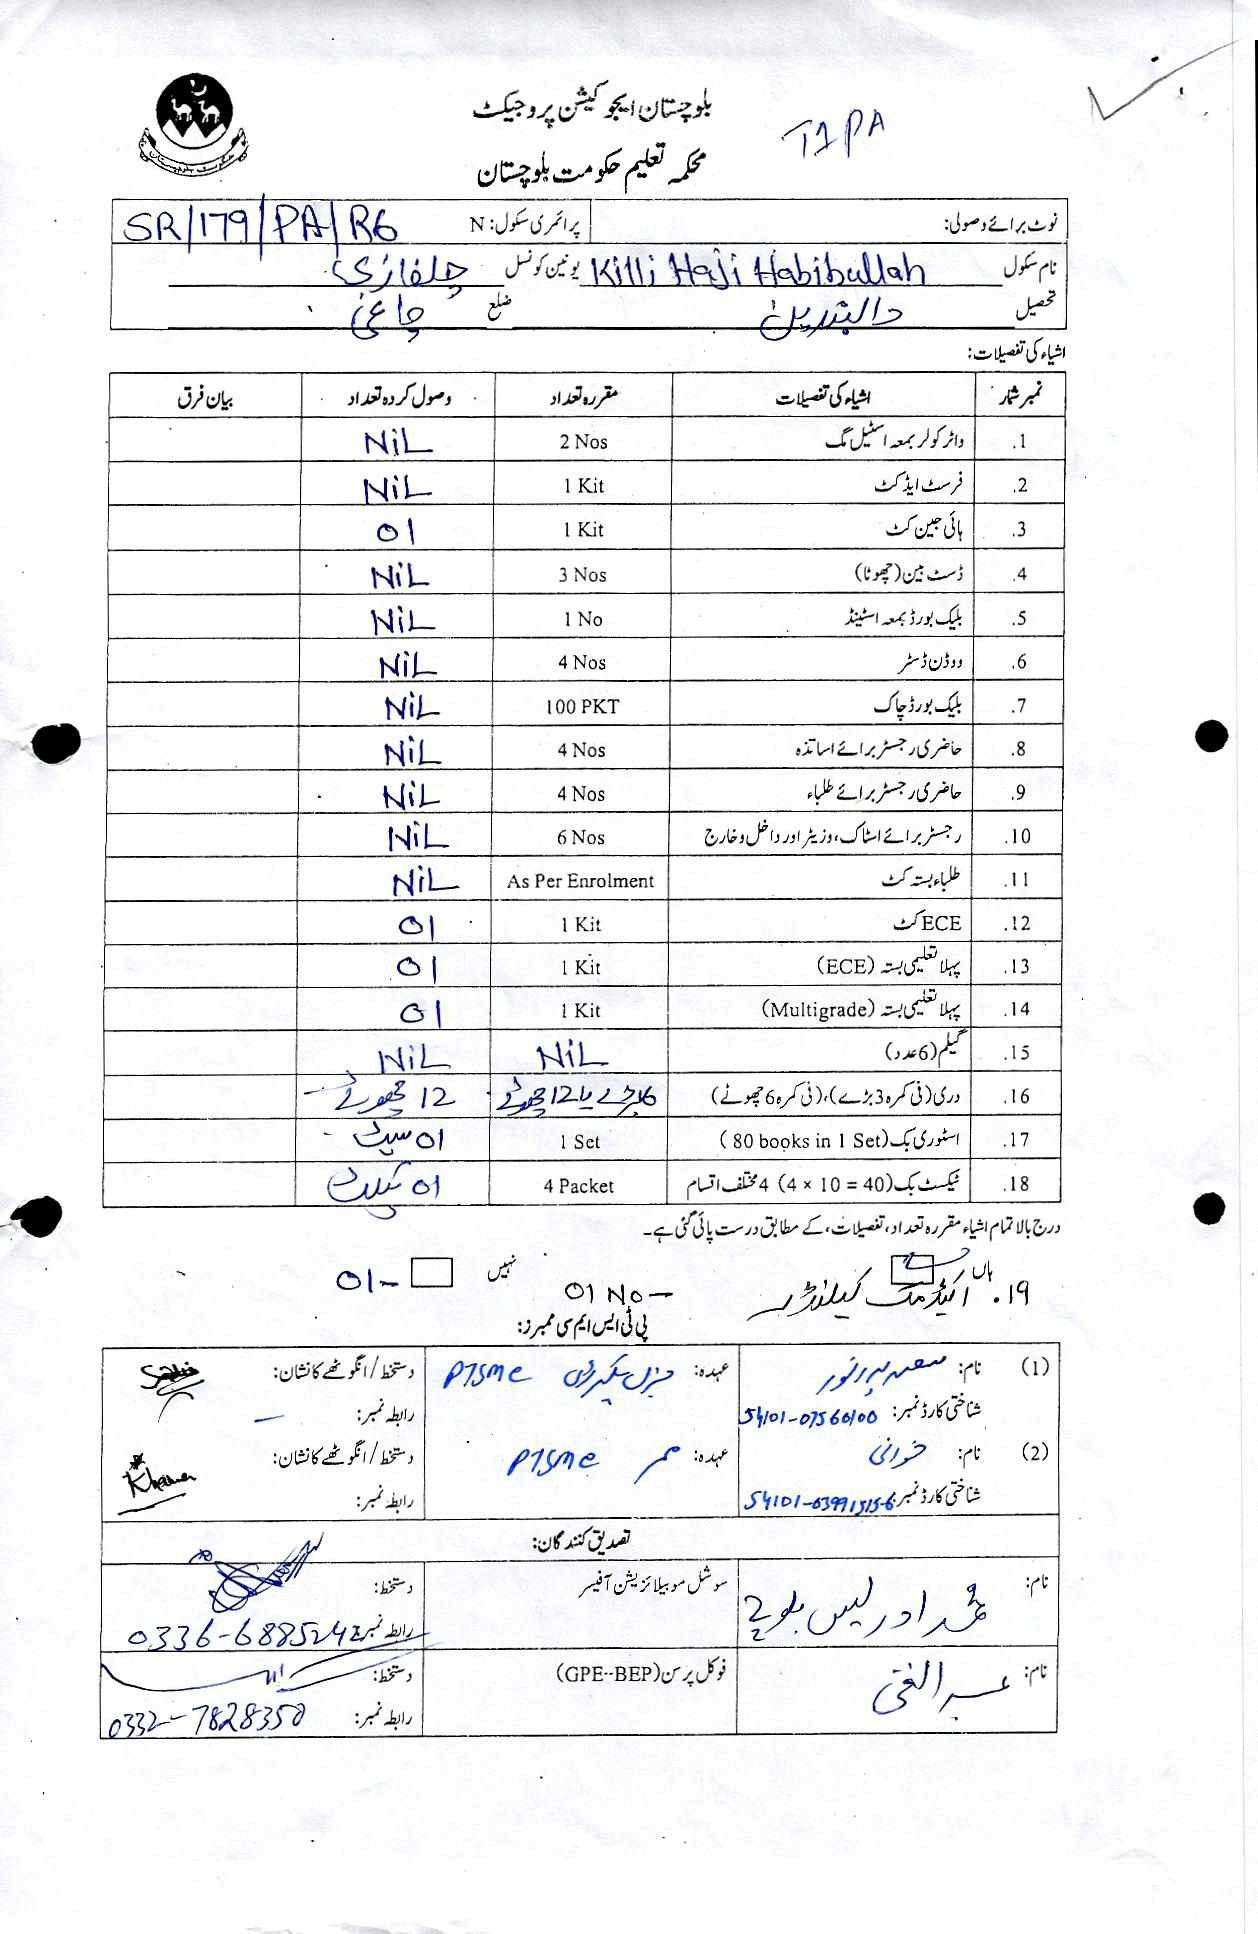 بلوچستان ایجوکیشن پروجیکٹ
T1PA
محکمہ تعلیم حکومت بلوچستان
نوٹ برائے وصولی: پرائمری سکول: N SR/179/PA/R6
نام سکول Killi Haji Habibullah یونین کونسل
تحصیل دالبندین ضلع چاغی
اشیاء کی تفصیلات:
نمبر شمار اشیاء کی تفصیلات مقررہ تعداد وصول کردہ تعداد بیان فرق
1. واٹر کولر بمعہ اسٹیل مگ 2 Nos NiL
2. فرسٹ ایڈ کٹ 1 Kit NiL
3. ہائی جین کٹ 1 Kit 01
4. ڈسٹ بین (چھوٹا) 3 Nos NiL
5. بلیک بورڈ بمعہ اسٹینڈ 1 No NiL
6. ووڈن ڈسٹر 4 Nos NiL
7. بلیک بورڈ چاک 100 PKT NiL
8. حاضری رجسٹر برائے اساتذہ 4 Nos NiL
9. حاضری رجسٹر برائے طلباء 4 Nos NiL
10. رجسٹر برائے اسٹاک، وزیٹر اور داخل و خارج 6 Nos NiL
11. طلباء بستہ کٹ As Per Enrolment NiL
12. ECE کٹ 1 Kit 01
13. پہلا تعلیمی بستہ (ECE) 1 Kit 01
14. پہلا تعلیمی بستہ (Multigrade) 1 Kit 01
15. گیلم (6 عدد) NiL NiL
16. دری (فی کمرہ 3 بڑے)، (فی کمرہ 6 چھوٹے) 6 بڑے یا 12 چھوٹے 12 چھوٹے
17. اسٹوری بک (80 books in 1 Set) 1 Set 01 سیٹ
18. ٹیکسٹ بک (4 × 10 = 40) 4 مختلف اقسام 4 Packet 01
درج بالا تمام اشیاء مقررہ تعداد، تفصیلات، کے مطابق درست پائی گئی ہے۔
ہاں نہیں 01-
19. اکیڈمک کیلنڈر 01 No -
پی ٹی ایس ایم سی ممبرز:
(1) نام: عہدہ: جنرل سیکرٹری PTSMC دستخط/انگوٹھے کا نشان:
شناختی کارڈ نمبر: 54101-07560100 رابطہ نمبر: -
(2) نام: عہدہ: ممبر PTSMC دستخط/انگوٹھے کا نشان:
شناختی کارڈ نمبر: 54101-03991515-6 رابطہ نمبر:
تصدیق کنندگان:
نام: محمد ادریس بلوچ سوشل موبیلائزیشن آفیسر دستخط:
رابطہ نمبر: 0336-6885242
نام: عبدالغنی فوکل پرسن (GPE--BEP) دستخط:
رابطہ نمبر: 0332-7828350